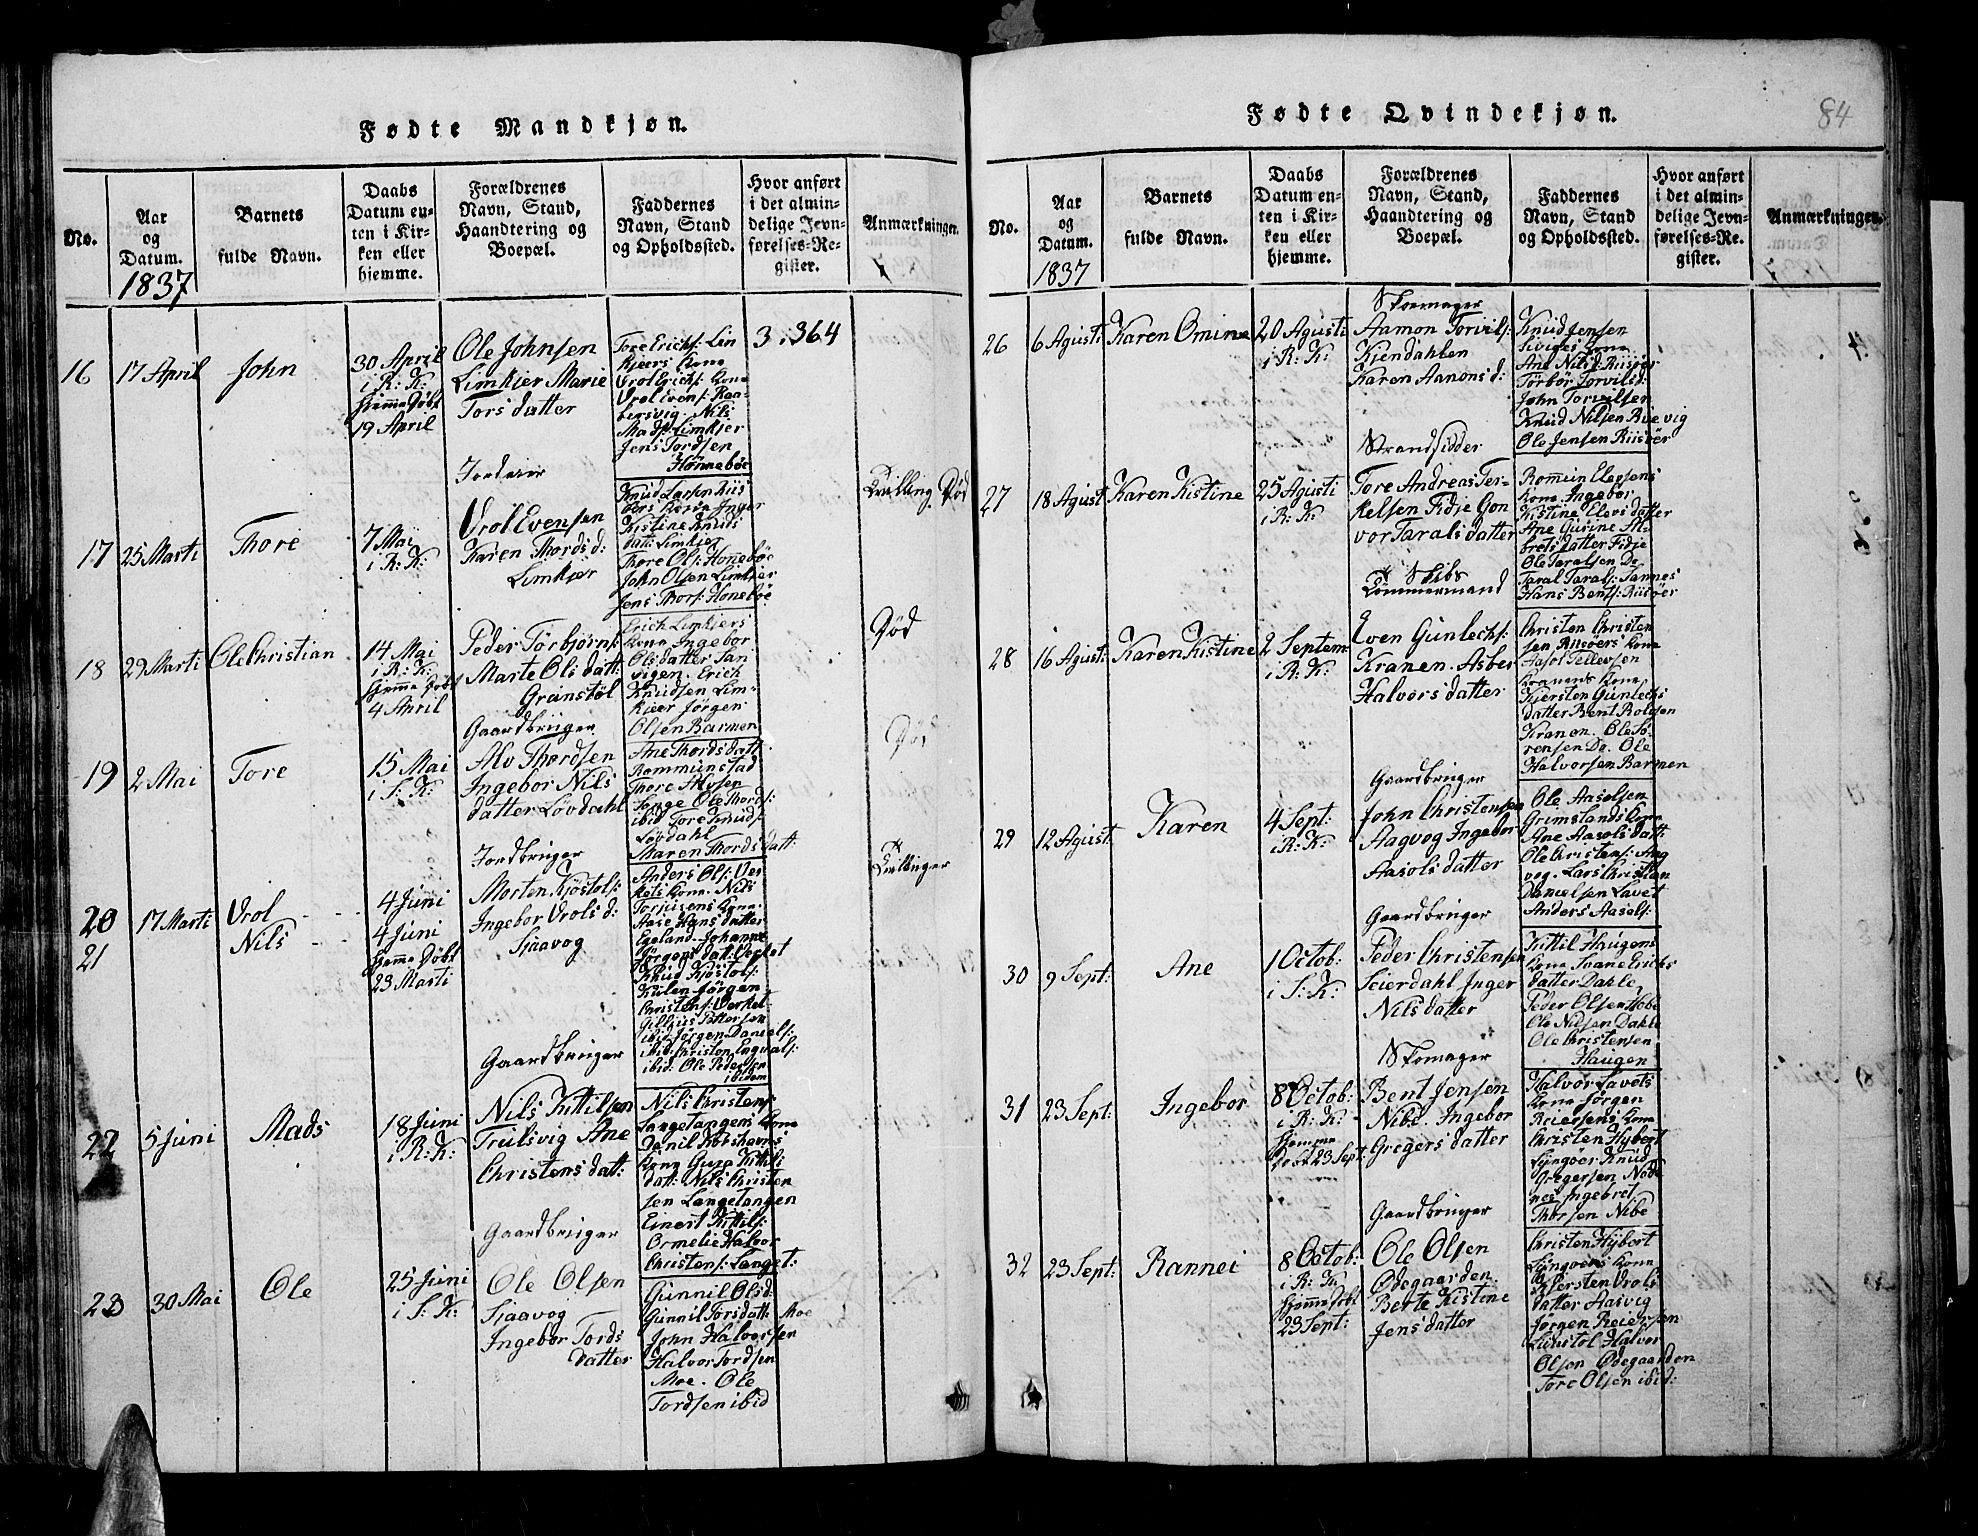 Fødte Mandkjøn.
No.
Aar
og
Datum.
1837
Barnets
fulde Navn.
Daabs
Datum en-
ten i Kir-
ken eller
hjemme.
Forældrenes
Navn, Stand,
Haandtering og
Boepæl.
Faddernes
Navn, Stand
og Opholdssted.
Hvor anført
i det almin-
delige Jevn-
førelses-Re-
gister.
Anmærkninger.
16
17 April
John
30 April
i R: K:
Hjemme Døbt
19 April
Ole Johnsen
Limkjer Marie
Tors datter
Tore Erichs: Lim
kjers Kone
Vrol Erichs: Kone
Vrol Evens: Raa-
bersvig. Nils
Mads: Limkjer
Jens Tordsen
Hønnebøe
3.:364
17
25 Marti
Thore
7 Mai
i R: K:
Jordeier
Vrol Evensen
Karen Thords d:
Limkjer
Knud Larsen Riis
Kistine Knuds
datt: Limkjer
Thore Ols: Honebøe
John Olsen Limkjer
Jens Thors: Honebøe
Tvilling. Død
18
29 Marti
Ole Christian
14 Mai
i R: K:
Hjemme Døbt
4 April
Peder Törbjörns:
Marte Ols datt:
Granstøl
Erich Limkjers
Kone Ingebor
Olsdatter San
vigen. Erich
Knudsen Lim-
kjeer Jörgen
Olsen Barmen
Død
19
2 Mai
Tore
15 Mai
i S: K:
Gaardbruger
Alv Thordsen
Ingebor Nils
datter Løvdahl
Ane Thords datt:
Rommunstad
Thore Alvsen
Songe Ole Thords:
ibid Tore Knuds:
Løvdahl
Maren Thords datt:
Død
20
21
17 Marti
Vrol
Nils
4 Juni
4 Juni
Hjemme Døbt
23 Marti
Jordbruger
Morten Kjøstols:
Ingebor Vrols d:
Sjaavog
Anders Ols: Ver
kets Kone. Nils
Torjusens Kone
Aase Hans datter
Egeland. Johanne
Jørgens dat: Verket
Knud Kjøstols:
Kiilen Jørgen
Christens: Verket-
Gilljus Pettersen
ibid Jørgen Daniels:
ibid Christen Engvals:
ibid: Ole Pedersen
ibidem
Tvillinger
22
5 Juni
Mads
18 Juni
i R: K:
Gaardbruger
Nils Kittilsen
Trulsvig Ane
Christens datt:
Nils Christens:
Langetangens Kone
Danil Korshavns
Kone Gura Kittils
datt: Nils Christen
sen Langetangen
Einert Kittils:
Ormelie Halvor
Christens: Langet:
23
30 Mai
Ole
25 Juni
i S: K:
Gaardbruger
Ole Olsen
Sjaavog
Ingebor Tords
datter
Gunnil Olsd:
Gunnil Torsdatt: Moe
John Halvorsen
Halvor Tordsen
Moe. Ole
Tordsen ibid
Fødte Qvindekjøn.
84
No.
Aar
og
Datum.
1837
Barnets
fulde Navn.
Daabs
Datum en-
ten i Kir-
ken eller
hjemme.
Forældrenes
Navn, Stand,
Haandtering og
Boepæl.
Faddernes
Navn, Stand
og Opholdssted.
Hvor anført
i det almin-
delige Jevn-
førelses-Re-
gister.
Anmærkninger.
26
6 Agusti
Karen Omine
20 Agusti
i R: K:
Skomager
Aamon Torvils:
Kjendahlen
Karen Aanons d:
Knud Jensen
Siviges Kone
Ane Nilsd: Riisøer
Törbör Torvilsd:
John Torvilsen
Knud Nilsen Ruevig
Ole Jensen Riisöer
27
18 Agust:
Karen Kistine
25 Agusti
i R: K:
Strandsidder
Tore Andreas Ter-
kelsen Fidje Gon
vor Tarals datter
Romuin Elefsens
Kone Ingebor
Kistine Elevs datter
Ane Gurine Al-
brets datter Fidje
Ole Taralsen Do
Taral Tarals: Sannes
Hans Bents: Riisöer
28
16 Agust:
Karen Kistine
2 Septem
i R: K:
Skibs
Tömmermand
Even Gunlechs:
Kranen. Asber
Halvors datter
Christen Christen
sen Riisöers Kone
Aasol Tellevsen
Kranens Kone
Kjersten Gunlechs
datter Bent Rolvsen
Kranen. Ole So-
rensen Do. Ole
Halvorsen Barmen
29
12 Agust:
Karen
4 Sept:
i R: K:
Gaardbruger
John Christensen
Aagvog Ingebor
Aasols datter
Ole Aasolsen
Grimslands Kone
Ane Aasols datt:
Ole Christens: Aag
vog. Lars Christian
Danielsen Lavet
Anders Aasols:
30
9 Sept:
Ane
1 Octob:
i S: K:
Gaardbruger
Peder Christensen
Seierdahl Inger
Nils datter
Kittil Haugens
Kone Svane Erichs
datter Dahle,
Peder Olsen Hobe
Ole Nilsen Dahle
Ole Christensen
Haugen
31
23 Sept:
Ingebor
8 Octob:
i R: K:
Hjemme
Døbt 23 Sept:
Skomager
Bent Jensen
Nibe. Ingebor
Gregers datter
Halvor Lavets
Kone Jörgen
Reiersens Kone
Christen Hybert
Lyngøer Knud
Gregersen Nöde
nes Ingebret
Thorsen Nibe
32
23 Sept:
Rannei
8 Octob:
i R: K:
Hjemme Døbt
23 Sept:
Gaardbruger
Ole Olsen
Ødegaarden.
Berte Kistine
Jens datter
Christen Hybert
Lyngoers Kone
Kjersten Vrols
datter Aasvig
Jørgen Reiersen
Lunstöl Halvor
Olsen Ødegaarden
Tore Olsen ibid: